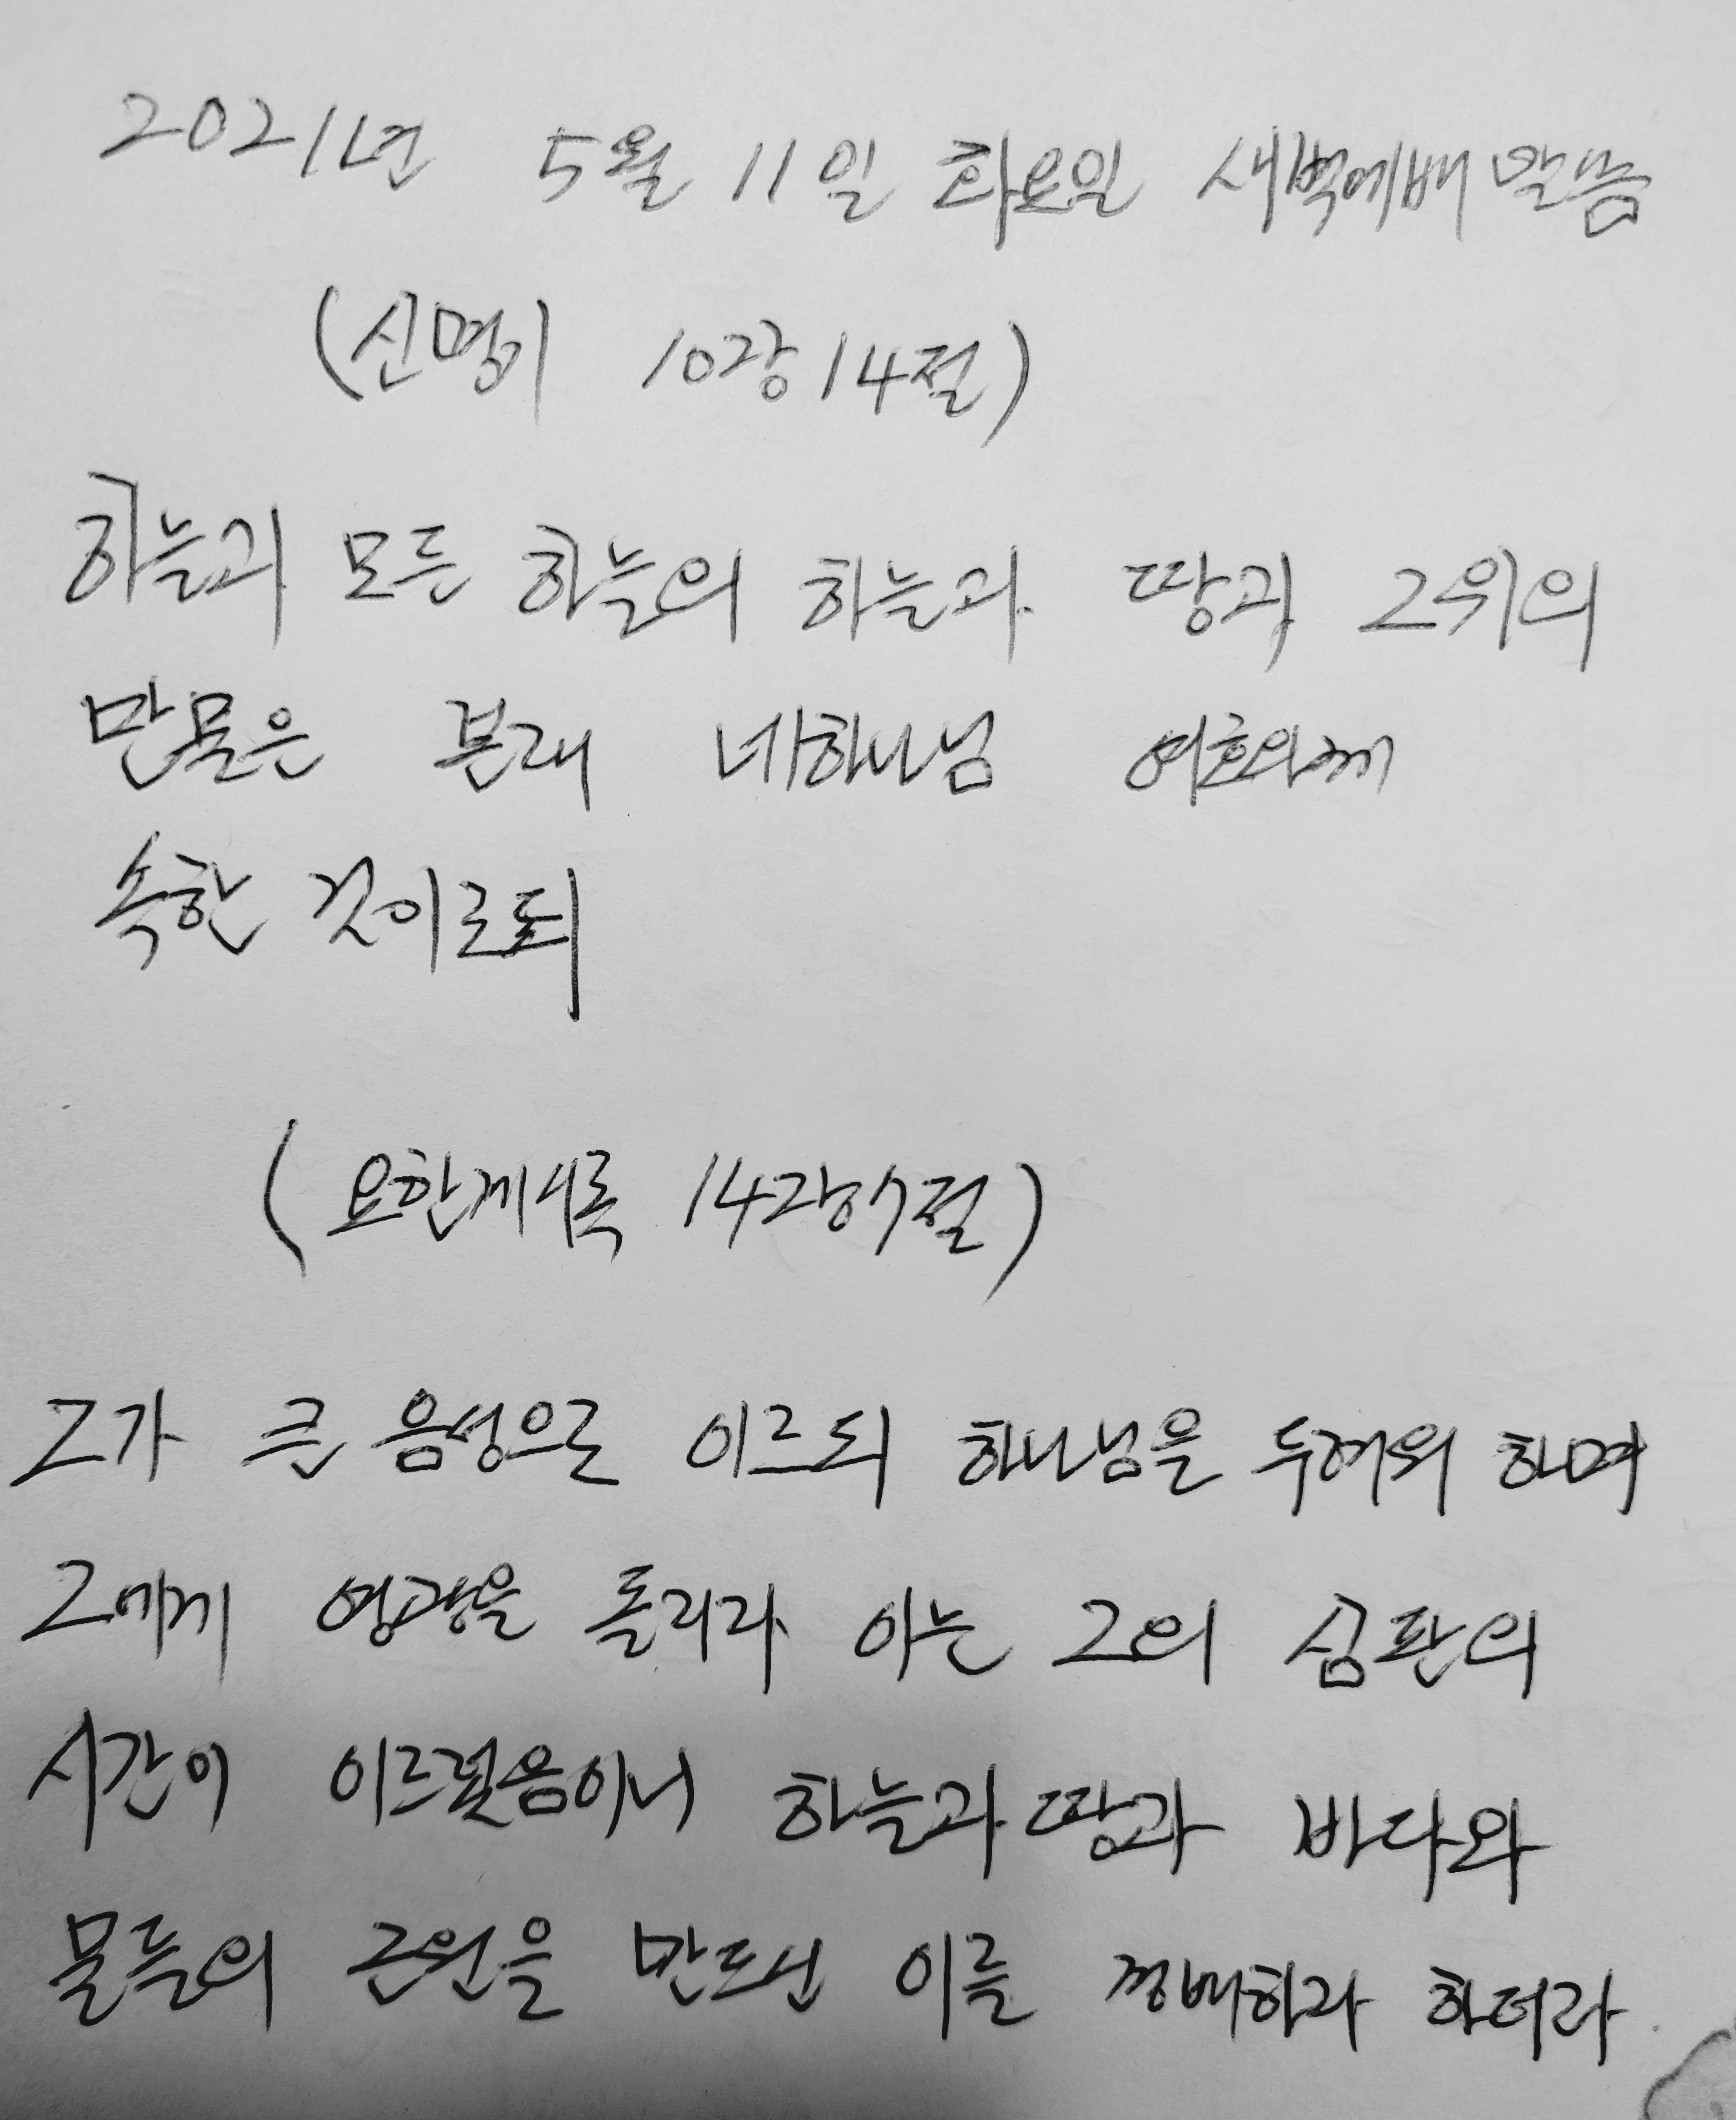 2021년 5월 11일 화요일 새벽예배 말씀
(신명기 10장 14절)
하늘과 모든 하늘의 하늘과 땅과 그위의
만물은 본래 네하나님 여호와께
속한 것이로되
(요한계시록 14장 7절)
그가 큰 음성으로 이르되 하나님을 두려워 하며
그에게 영광을 돌리라 이는 그의 심판의
시간이 이르렀음이니 하늘과 땅과 바다와
물들의 근원을 만드신 이를 경배하라 하더라